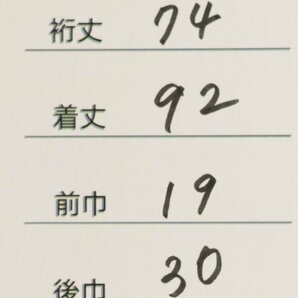 裄丈 74
着丈 92
前巾 19
後巾 30